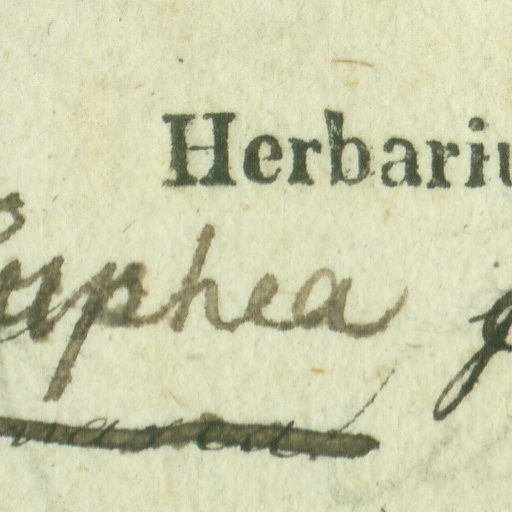 Herbariu
Cuphea g